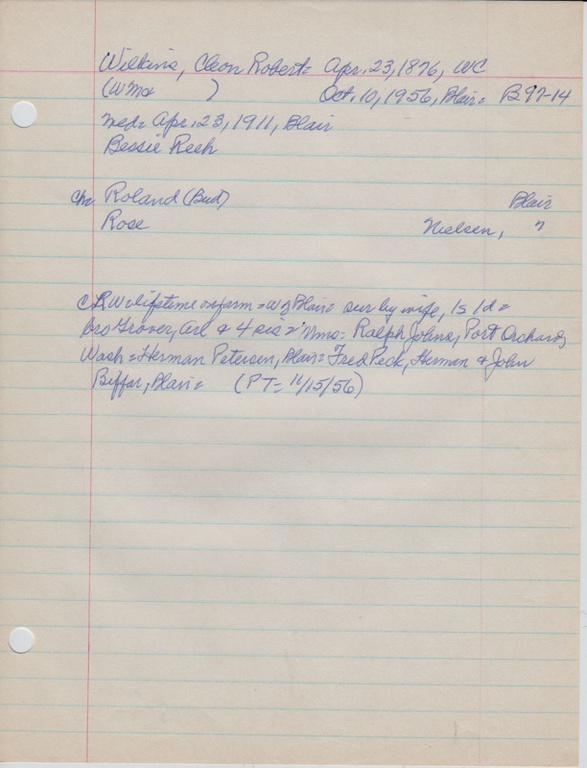 Wilkins, Cleon Robert = Apr. 23, 1876, WC
(Wm &        )        Oct. 10, 1956, Blair = B 97-14
med = Apr. 23, 1911, Blair
Bessie Reeh
Chn Roland (Bud)        Blair
Rose        Nielsen, "
CRW lifetime on farm = W of Blair = sur by wife, 1s 1d =
bro Grover, & 4 sis = Mmes = Ralph Johns, Port Orchard,
Wash = Herman Petersen, Blair = Fred Peck, Herman & John
Biffar, Blair =        (PT = 11/15/56)